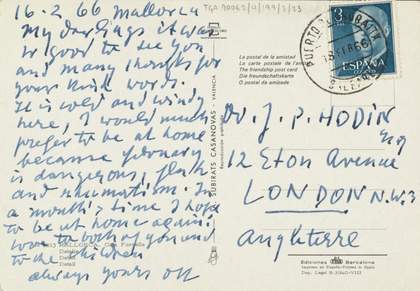 16-2 66 Mallorca
My darlings it was
so good to see you
and many thanks for
your kind words.
It is cold and windy
here, I would much
prefer to be at home
because february
is dangerous, flu
and rheumatism. In
a month's time I hope
to be at home again!
love to both of you and
to the children
always yours
TGA 20062/4/199/2/33
La postal de la amistad
La carte postale de l'amitié
The friendship post card
Die freundschaftskarte
O postal da amizade
SUBIRATS CASANOVAS - VALENCIA
MALLORCA
3
PTAS
ESPAÑA
PUERTO
18 FEB 66
Dr. J. P. HODIN
Esq
12 Eton Avenue
LONDON N.W.3
Angleterre
Ediciones Barcelona